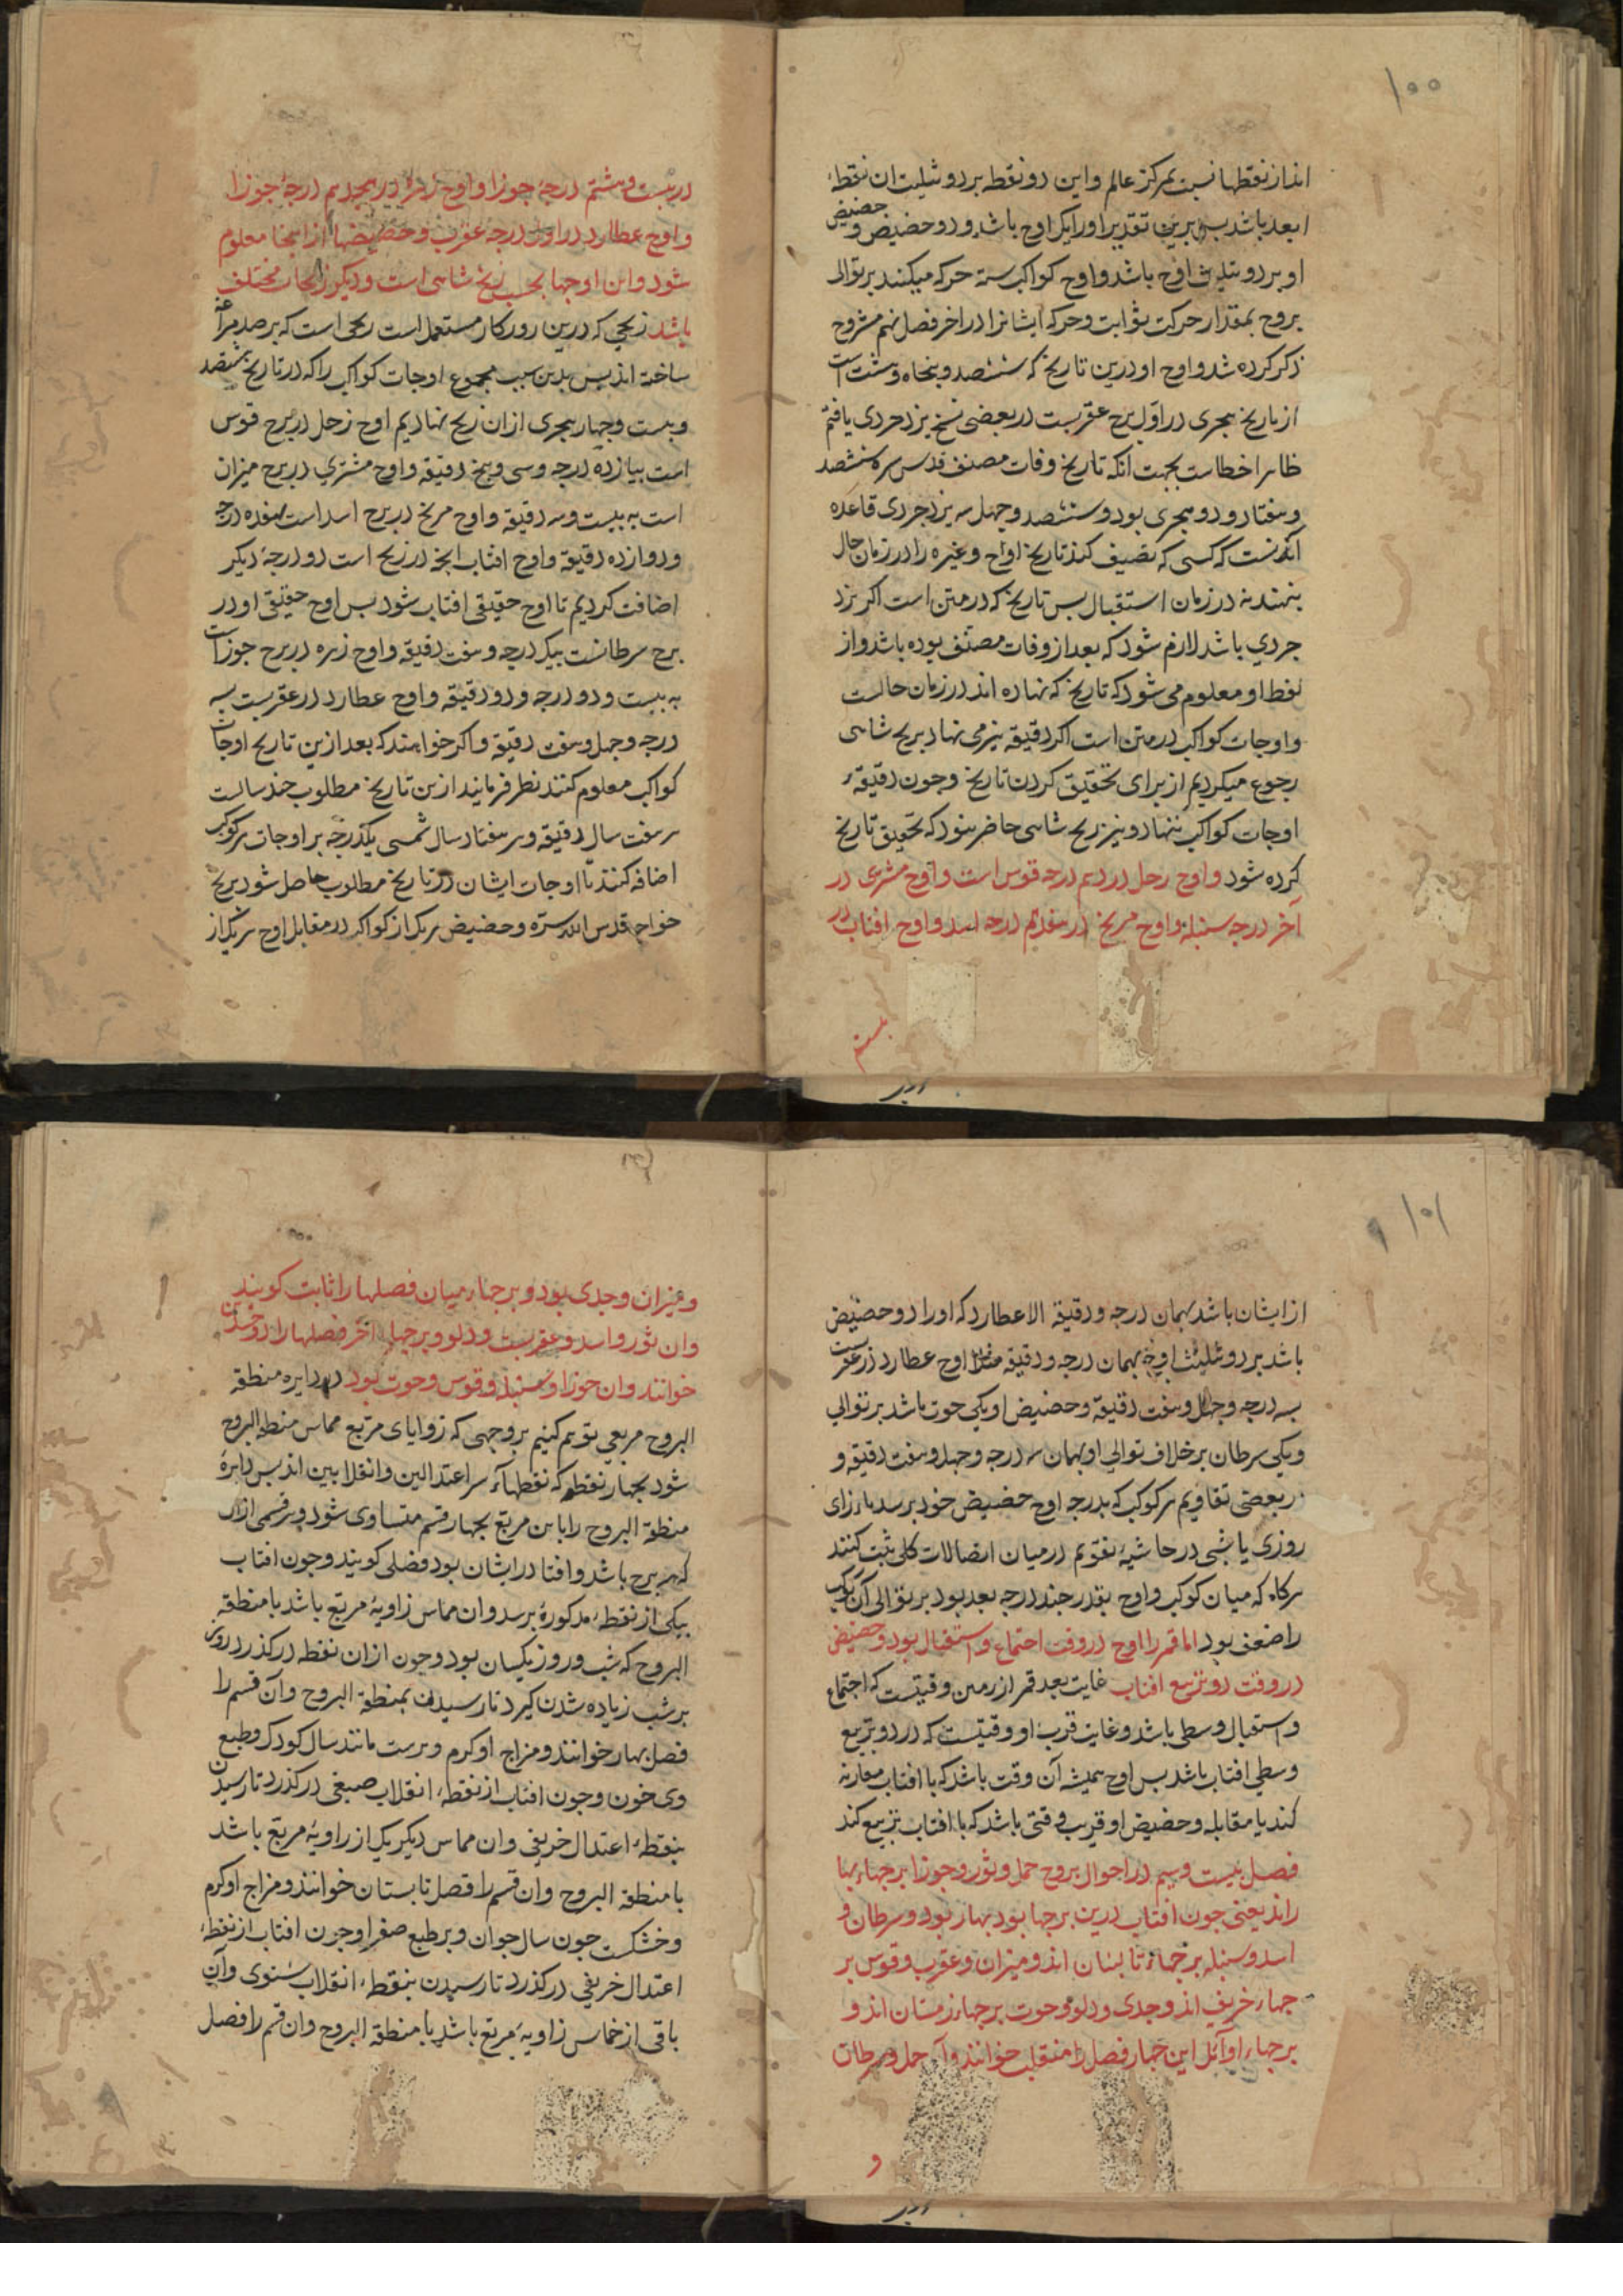 ۱۰۰
اند از نقطها نسبت بمرکز عالم و این دو نقطه بر دو تثلیث ان نقطهٔ
ابعد باشد پس برین تقدیر او را یک اوج باشد و دو حضیض و حضیض
او بر دو تثلیث اوج باشد و اوج کواکب ستة حرکه میکنند بر توالی
بروج بمقدار حرکت ثوابت و حرکه ایشانرا در اخر فصل نهم مشروح
ذکر کرده شد و اوج او درین تاریخ که ششصد و پنجاه و هشت است
از تاریخ هجری در اول برج عقربست در بعضی نسخ یزدجردی یافتم
ظاهرا خطاست بجهت انکه تاریخ وفات مصنف قدس سره ششصد
و هفتاد و دو هجری بود و ششصد و چهل سه یزدجردی قاعده
انکه نست که کسی که تصنیف کند تاریخ اوج و غیره را در زمان حال
بنهند نه در زمان استقبال پس تاریخ که در متن است اکر یزد
جردی باشد لازم شود که بعد از وفات مصنف بوده باشد و از
لفظ او معلوم می شود که تاریخ که نهاده اند در زمان حالست
و اوجات کواکب در متن است اکر دقیقه نیز می نهاد بزیج شاهی
رجوع میکردیم از برای تحقیق کردن تاریخ و چون دقیقهٔ
اوجات کواکب ننهاد و نیز زیج شاهی حاضر نبود که تحقیق تاریخ
کرده شود و اوج زحل در دهم درجه قوس است و اوج مشتری در
آخر درجه سنبله و اوج مریخ در هفدهم درجه اسد و اوج افتاب در
بیستم
در بیست و هشتم درجهٔ جوزا و اوج زهره در هجدهم درجهٔ جوزا
و اوج عطارد در اول درجه عقرب و حضیضها از اینجا معلوم
شود و این اوجها بحسب زیج شاهی است و دیکر زیجات مختلف
باشد زیجی که درین روزکار مستعمل است زیجی است که بر صد مراغه
ساخته اند پس بدین سبب مجموع اوجات کواکب را که در تاریخ هفتصد
و بیست و چهار هجری از ان زیج نهادیم اوج زحل در برج قوس
است بیازده درجه و سی و پنج دقیقه و اوج مشتری در برج میزان
است به بیست و سه دقیقه و اوج مریخ در برج اسد است بهفده درجه
و دوازده دقیقه و اوج افتاب انچه در زیج است دو درجهٔ دیکر
اضافت کردیم تا اوج حقیقی افتاب شود پس اوج حقیقی او در
برج سرطانست بیک درجه و هفت دقیقه و اوج زهره در برج جوزاست
به بیست و دو درجه و دو دقیقه و اوج عطارد در عقربست بسه
درجه و چهل و هفت دقیقه و اکر خواهند که بعد ازین تاریخ اوجات
کواکب معلوم کنند نظر فرمایند ازین تاریخ مطلوب چند سالست
هر هفت سال دقیقه و هر هفتاد سال شمسی یکدرجه بر اوجات هر کوکب
اضافه کنند تا اوجات ایشان در تاریخ مطلوب حاصل شود بزیج
خواجه قدس الله سره و حضیض هر یک از کواکب در مقابل اوج هر یک از
۱۰۱
از ایشان باشد بهمان درجه و دقیقه الا عطارد که او را دو حضیض
باشد بر دو تثلیث اوج بهمان درجه و دقیقه مثلا اوج عطارد در عقربست
بسه درجه و چهل و هفت دقیقه و حضیض او یکی حوت باشد بر توالی
و یکی سرطان بر خلاف توالی او بهمان سه درجه و چهل و هفت دقیقه و
در بعضی تقاویم هر کوکب که بدرجه اوج حضیض خود برسد بازای
روزی یا شبی در حاشیهٔ تقویم در میان اتصالات کلی ثبت کنند
هر کاه که میان کوکب و اوج بقدر چند درجه بعد بود بر توالی آن کوکب
را ضعف بود اما قمر را اوج در وقت اجتماع و استقبال بود و حضیض
در وقت دو تربیع افتاب غایت بعد قمر از زمین وقتیست که اجتماع
و استقبال وسطی باشد و غایت قرب او وقتیست که در دو تربیع
وسطی افتاب باشد پس اوج همیشه آن وقت باشد که با افتاب مقارنه
کند یا مقابله و حضیض او قریب وقتی باشد که با افتاب تربیع کند
فصل بیست و سیم در احوال بروج حمل و ثور و جوزا برجهاء بها
راند یعنی چون افتاب درین برجها بود بهار بود و سرطان و
اسد و سنبله برجهاء تابستان اند و میزان و عقرب و قوس بر
جهاء خریف اند و جدی و دلو و حوت برجهاء زمستان اند و
برجهاء اوائل این چهار فصل را منقلب خوانند و آن حمل و سرطان
و
و میزان و جدی بود و برجهاء میان فصلها را ثابت کویند
وان ثور و اسد و عقربست و دلو و برجهاء اخر فصلها را دو جسدین
خوانند وان جوزا و سنبله و قوس و حوت بود در دایره منطقة
البروج مربعی توهم کنیم بر وجهی که زوایای مربع مماس منطقة البروج
شود بچهار نقطه که نقطهاء سر اعتدالین و انقلابین اند پس دایرهٔ
منطقة البروج را باین مربع بچهار قسم متساوی شود و هر قسمی ازان
که سه برج باشد و افتاب در ایشان بود فصلی کویند و چون افتاب
بیکی از نقطهٔ مذکوره برسد وان مماس زاویهٔ مربع باشد با منطقة
البروج که شب و روز یکسان بود و چون ازان نقطه درکذرد روز
بر شب زیاده شدن کیرد تا رسیدن بمنطقة البروج وآن قسم را
فصل بهار خوانند و مزاج او کرم و ترست مانند سال کودک و طبع
وی خون و چون افتاب از نقطهٔ انقلاب صیفی درکذرد تا رسیدن
بنقطهٔ اعتدال خریفی وان مماس دیکر یک از زاویهٔ مربع باشد
با منطقة البروج وان قسم را فصل تابستان خوانند و مزاج او کرم
و خشکست چون سال جوان و بر طبع صفرا و چون افتاب از نقطهٔ
اعتدال خریفی درکذرد تا رسیدن بنقطهٔ انقلاب شتوی وآن
باقی از خماس زاویهٔ مربع باشد با منطقة البروج وان قسم را فصل